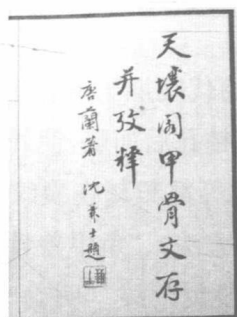 天壤阁甲骨文存
并攷釋
唐蘭著 沈兼士題